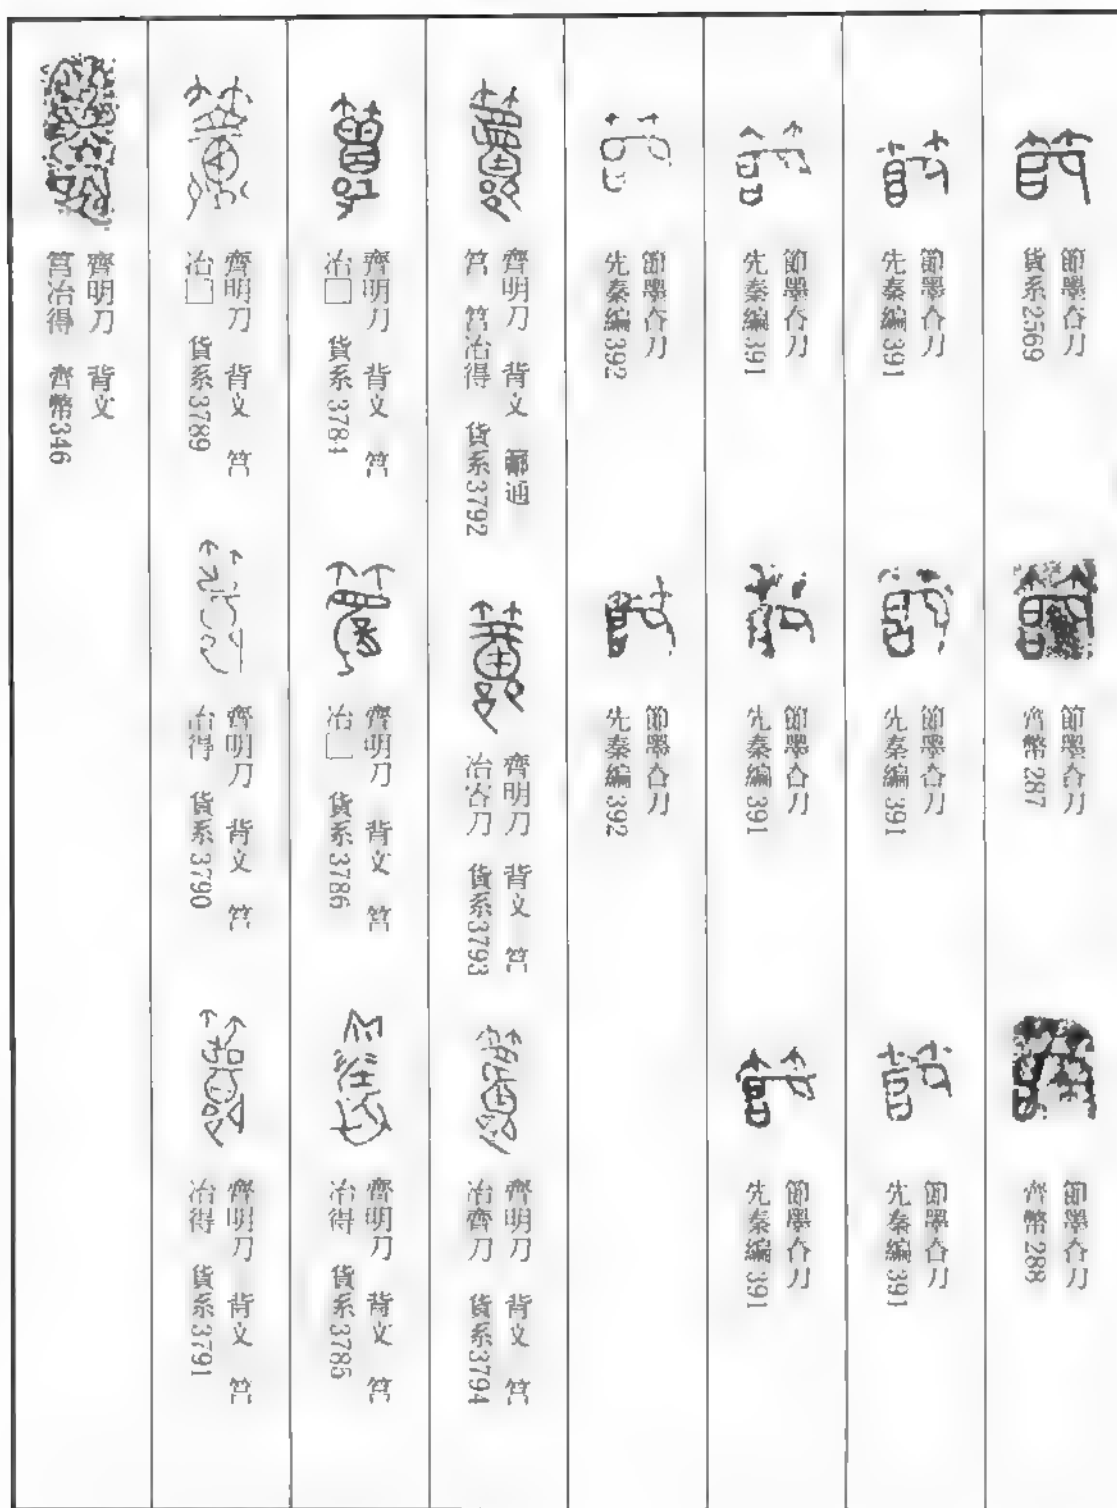 節墨杏刀
貨系2569
節墨杏刀
齊幣287
節墨杏刀
齊幣288
節墨杏刀
先秦編391
節墨杏刀
先秦編391
節墨杏刀
先秦編391
節墨杏刀
先秦編391
節墨杏刀
先秦編391
節墨杏刀
先秦編391
節墨杏刀
先秦編392
節墨杏刀
先秦編392
齊明刀 背文 通
筥 筥冶得 貨系3792
齊明刀 背文 筥
冶刀 貨系3793
齊明刀 背文 筥
冶齊刀 貨系3794
齊明刀 背文 筥
冶□ 貨系3784
齊明刀 背文 筥
冶□ 貨系3786
齊明刀 背文 筥
冶得 貨系3785
齊明刀 背文 筥
冶□ 貨系3789
齊明刀 背文 筥
冶得 貨系3790
齊明刀 背文 筥
冶得 貨系3791
齊明刀 背文
筥冶得 齊幣346